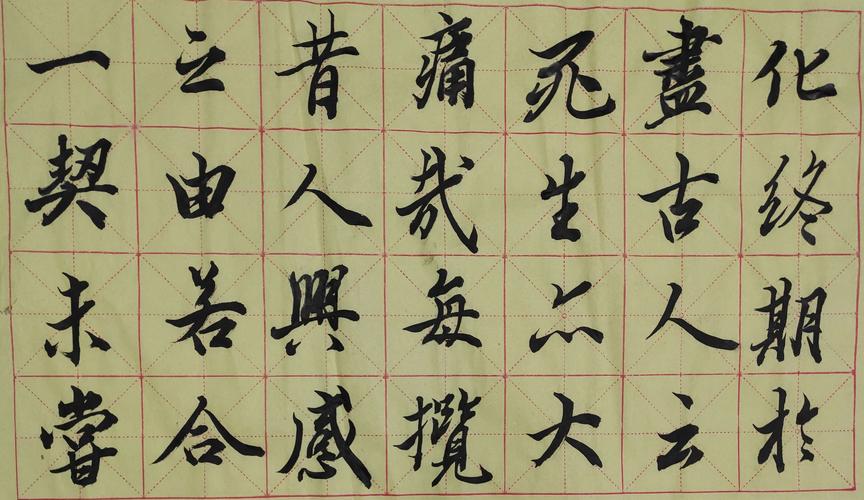 化终期於
盡古人云
死生亦大
痛哉每攬
昔人興感
之由若合
一契未嘗